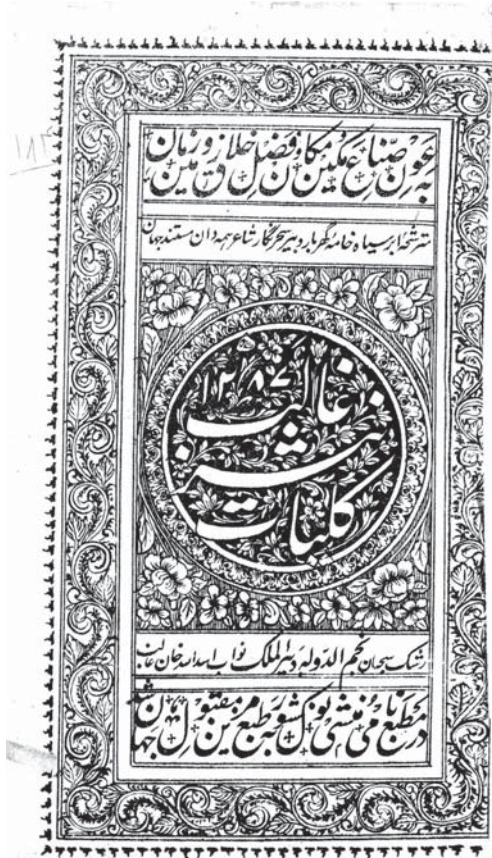 به عون صناع مکین و مکان و فضل خلاق زمین و زمان
مترشحهٔ ابر سیاه خامهٔ گهربار دبیر سحرنگار شاعر همه دان مستند جهان
کلیات
نثر
غالب
۱۲۸۷
رشک سحبان نجم الدوله دبیر الملک نواب اسد الله خان غالب
در مطبع نامی منشی نولکشور به طبع مزین مقبول جهان شد